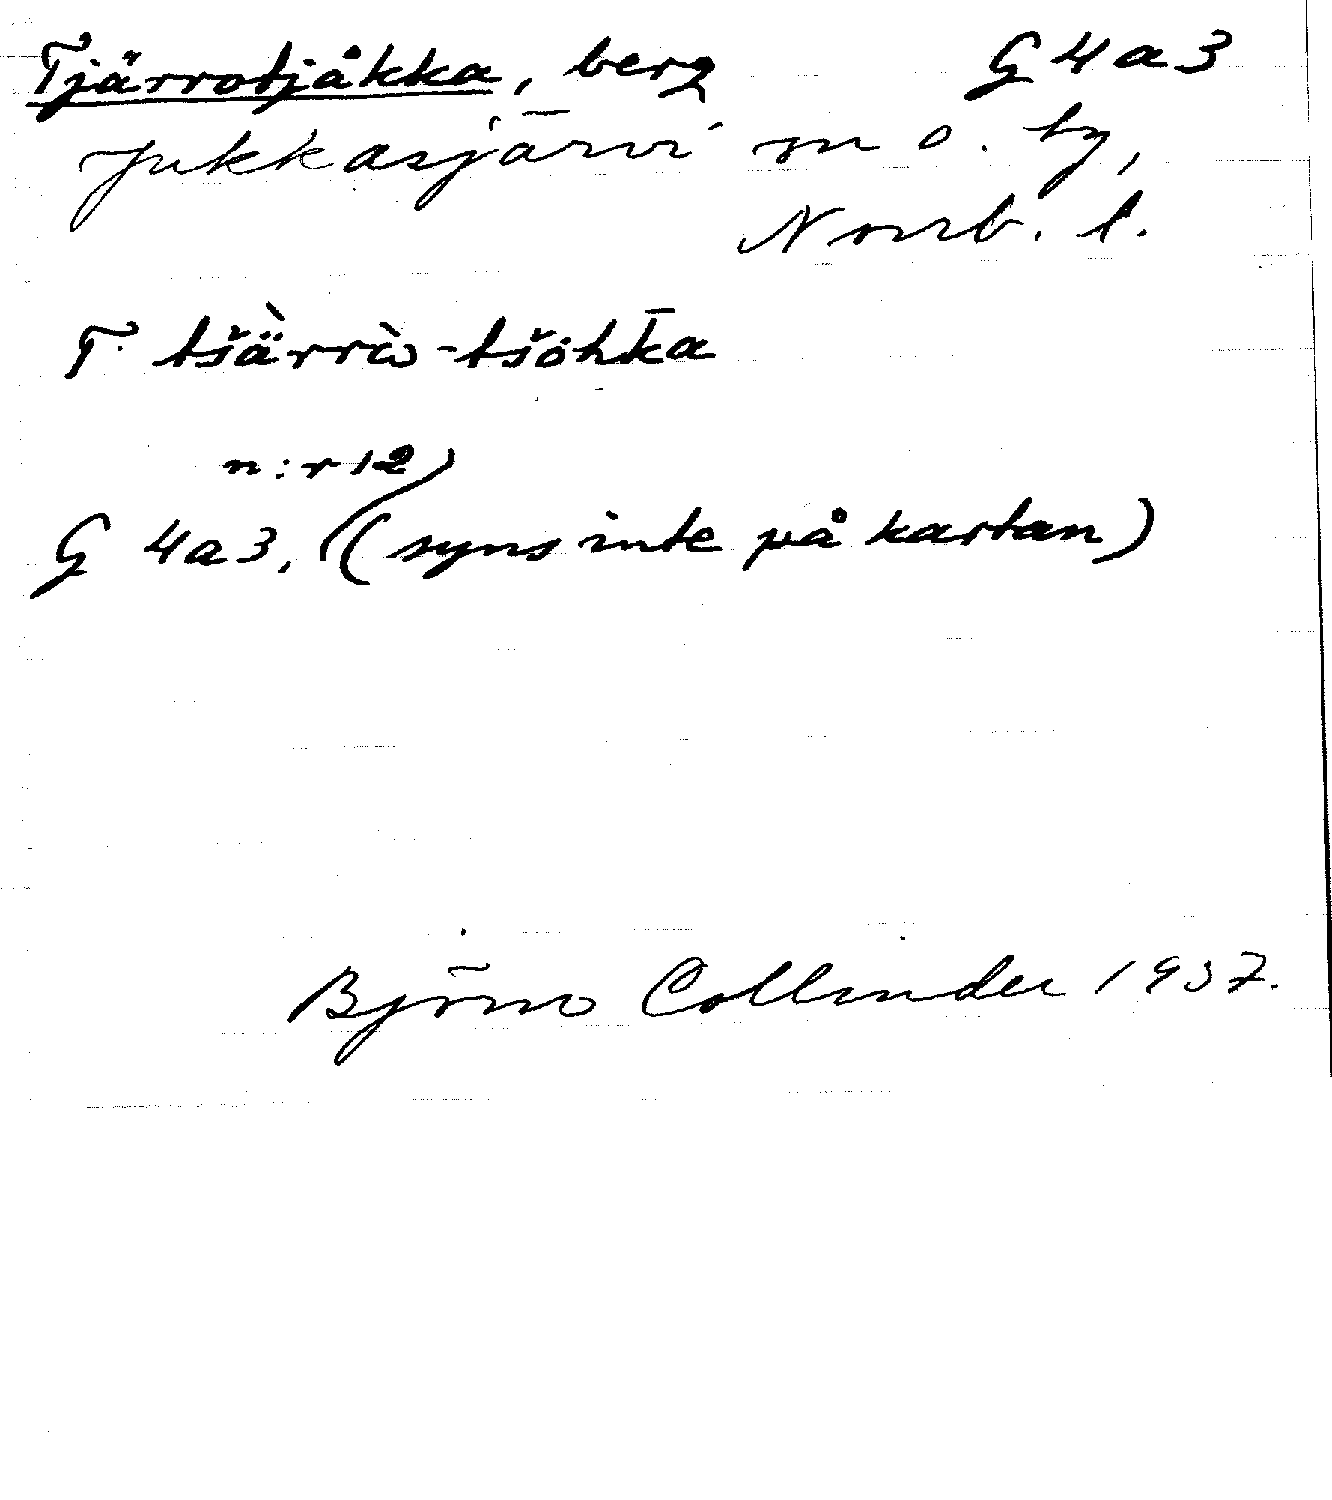 Tjärrotjåkka, berg G4a3
Jukkasjärvi sn o. ty,
Norrb. l.
T. tšä̀rrò-tšohk̄a
n:r 12
G 4a3, (syns inte på kartan)
Björn Collinder 1937.